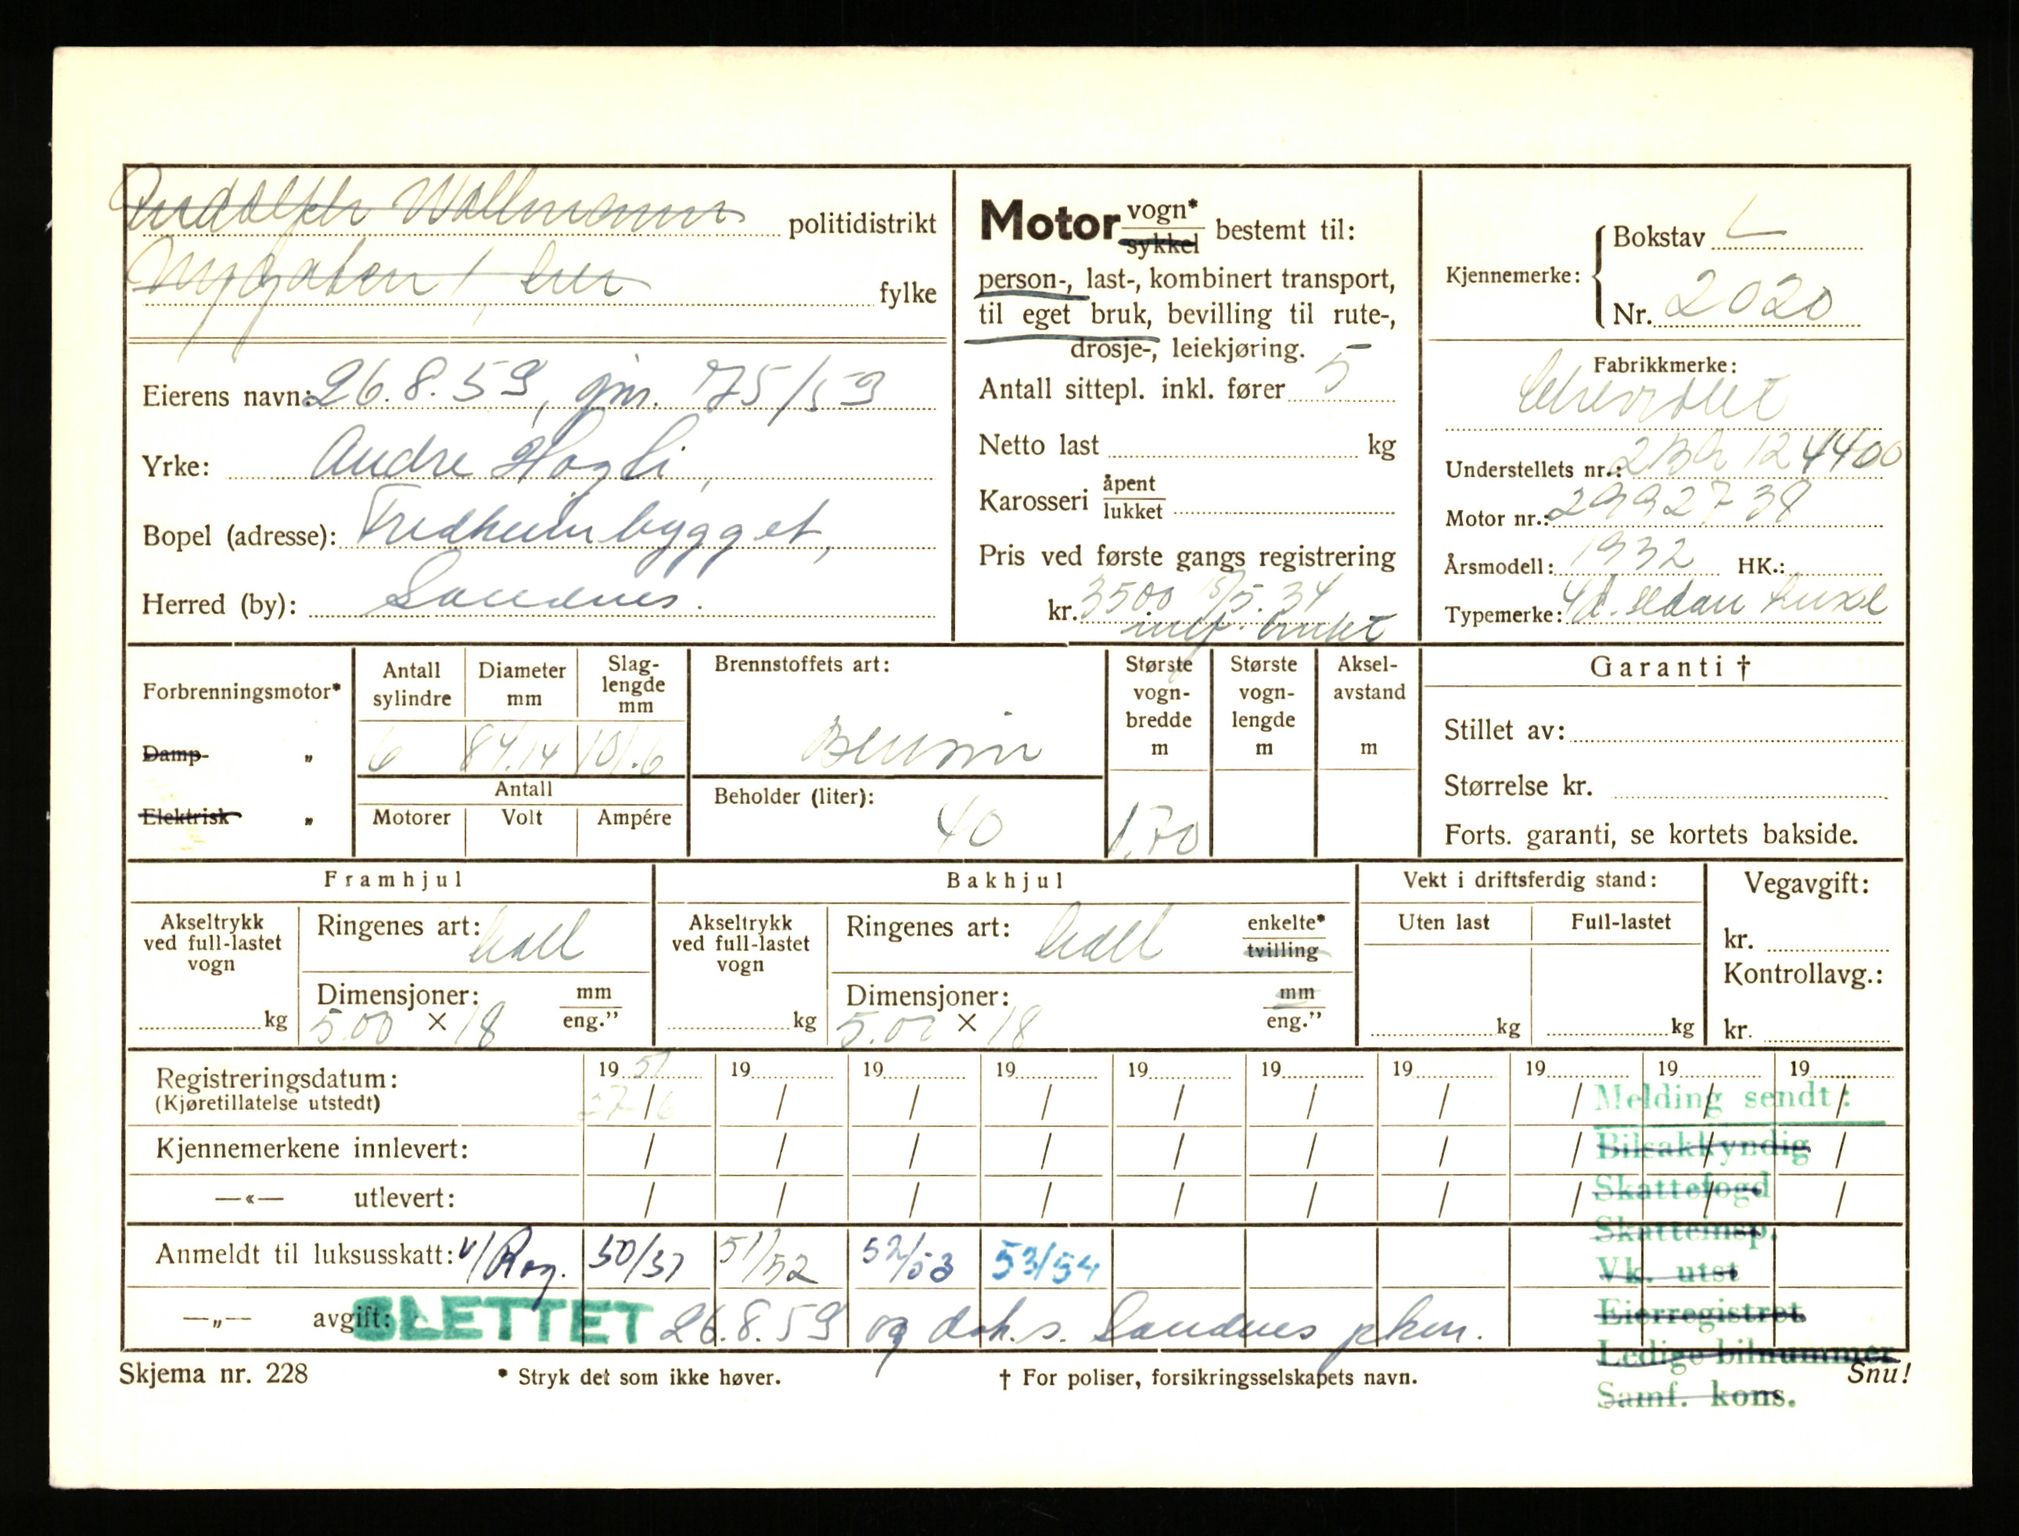 Rudolph Wallmann politidistrikt
Nygaten 1, her fylke
Eierens navn: 26.8.59, gm. 75/59
Yrke: Andre Hagli,
Bopel (adresse): Fredheimbygget,
Herred (by): Sandnes.
Motor vogn* sykkel bestemt til:
person-, last-, kombinert transport,
til eget bruk, bevilling til rute-,
drosje-, leiekjøring.
Antall sittepl. inkl. fører 5
Netto last kg
Karosseri åpent lukket
Pris ved første gangs registrering
kr. 3500 15/5.34
innf. brukt
Kjennemerke: Bokstav L
Nr. 2020
Fabrikkmerke:
Chevrolet
Understellets nr.: 2BA 12 4400
Motor nr.: 2992738
Årsmodell: 1932 HK.:
Typemerke: 4d. sedan luxe
Forbrenningsmotor*
Damp- „
Elektrisk „
Antall sylindre 6
Diameter mm 84.14
Slaglengde mm 101.6
Antall
Motorer Volt Ampére
Brennstoffets art:
Bensin
Beholder (liter):
40
Største vogn-bredde m 1.70
Største vogn-lengde m
Aksel-avstand m
Garanti †
Stillet av:
Størrelse kr.
Forts. garanti, se kortets bakside.
Framhjul
Akseltrykk ved full-lastet vogn kg
Ringenes art: ball
Dimensjoner: mm eng.”
5.00 × 18
Bakhjul
Akseltrykk ved full-lastet vogn kg
Ringenes art: ball enkelte* tvilling
Dimensjoner: mm eng.”
5.00 × 18
Vekt i driftsferdig stand:
Uten last Full-lastet
kg kg
Vegavgift:
kr.
Kontrollavg.:
kr.
Registreringsdatum: 1951 19 19 19 19 19 19 19 19 19
(Kjøretillatelse utstedt) 27/6 / / / / / / / / /
Kjennemerkene innlevert: / / / / / / / / / /
—«— utlevert: / / / / / / / / / /
Anmeldt til luksusskatt: v/Rog. 50/51 51/52 52/53 53/54
—„— avgift: SLETTET 26.8.59 og dok. s. Sandnes pkm.
Melding sendt:
Bilsakkyndig
Skattefogd
Skatteinsp.
Vk. utst
Eierregistret
Ledige bilnummer
Samf. kons.
Skjema nr. 228 * Stryk det som ikke høver. † For poliser, forsikringsselskapets navn. Snu!